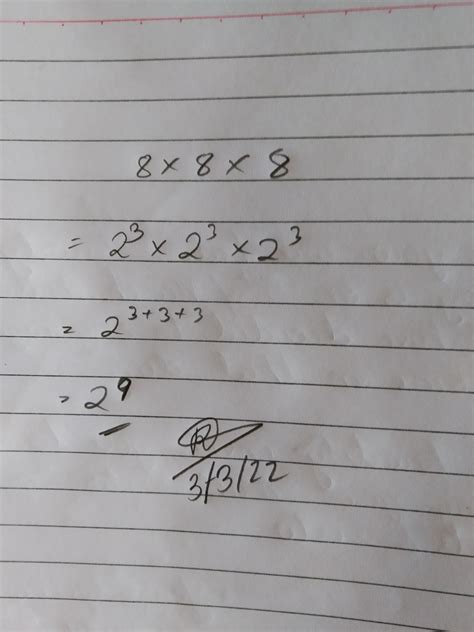 8 × 8 × 8
= 2³ × 2³ × 2³
= 2³⁺³⁺³
= 2⁹
3/3/22